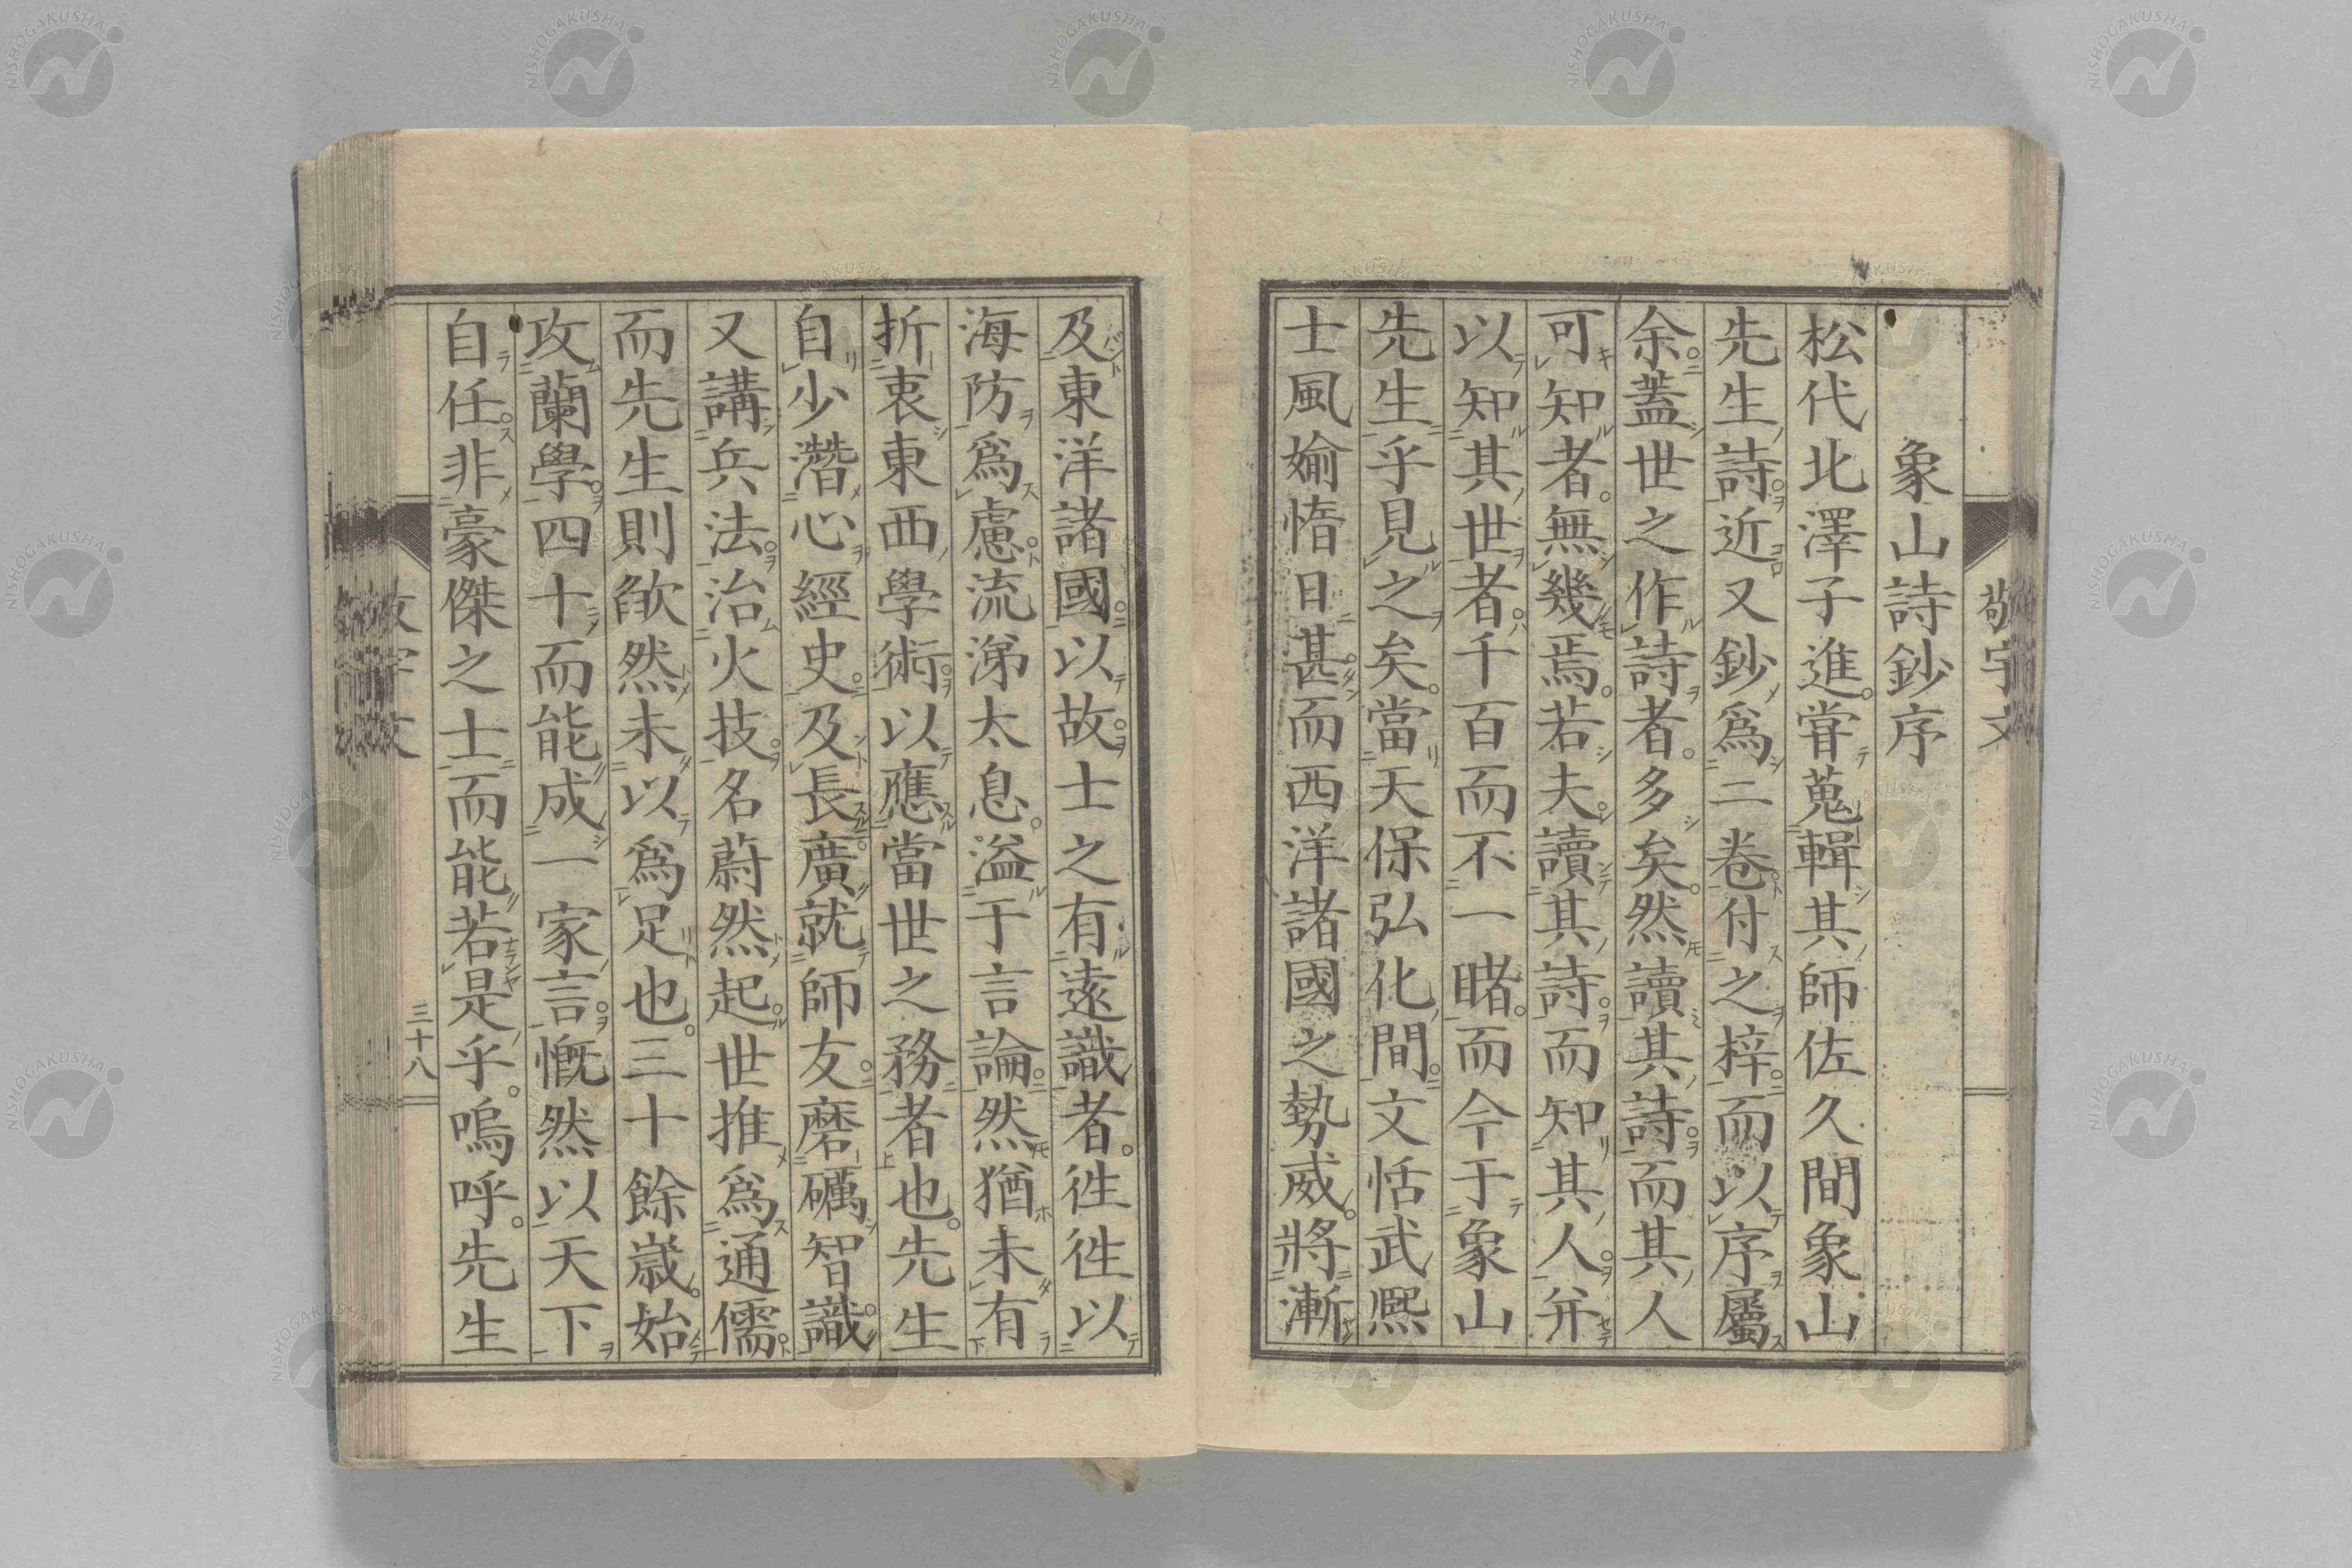 象山詩鈔序
松代北澤子進。甞蒐輯其師佐久間象山
先生詩。近又鈔爲二卷。付之梓。而以序屬
余。蓋世之作詩者。多矣。然讀其詩。而其人
可知者。無幾焉。若夫讀其詩。而知其人。并
以知其世者。千百而不一睹。而今于象山
先生乎見之矣。當天保弘化間。文恬武熈
士風婾惰日甚。而西洋諸國之勢威。將漸
及東洋諸國。以故。士之有遠識者。徃徃以
海防爲慮。流涕太息。溢于言論。然猶未有
折衷東西學術。以應當世之務者也。先生
自少潛心經史。及長。廣就師友。磨礪智識。
又講兵法。治火技。名蔚然起。世推爲通儒。
而先生則欿然未以爲足也。三十餘歲。始
攻蘭學。四十而能成一家言。慨然以天下
自任。非豪傑之士而能若是乎。嗚呼。先生
三十八
敬宇文
NISHOGAKUSHA